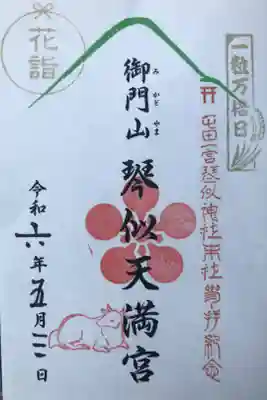 一粒万倍日
屯田一宮琴似神社末社参拝記念
御門山
み かど やま
琴似天満宮
花詣
令和六年五月三日